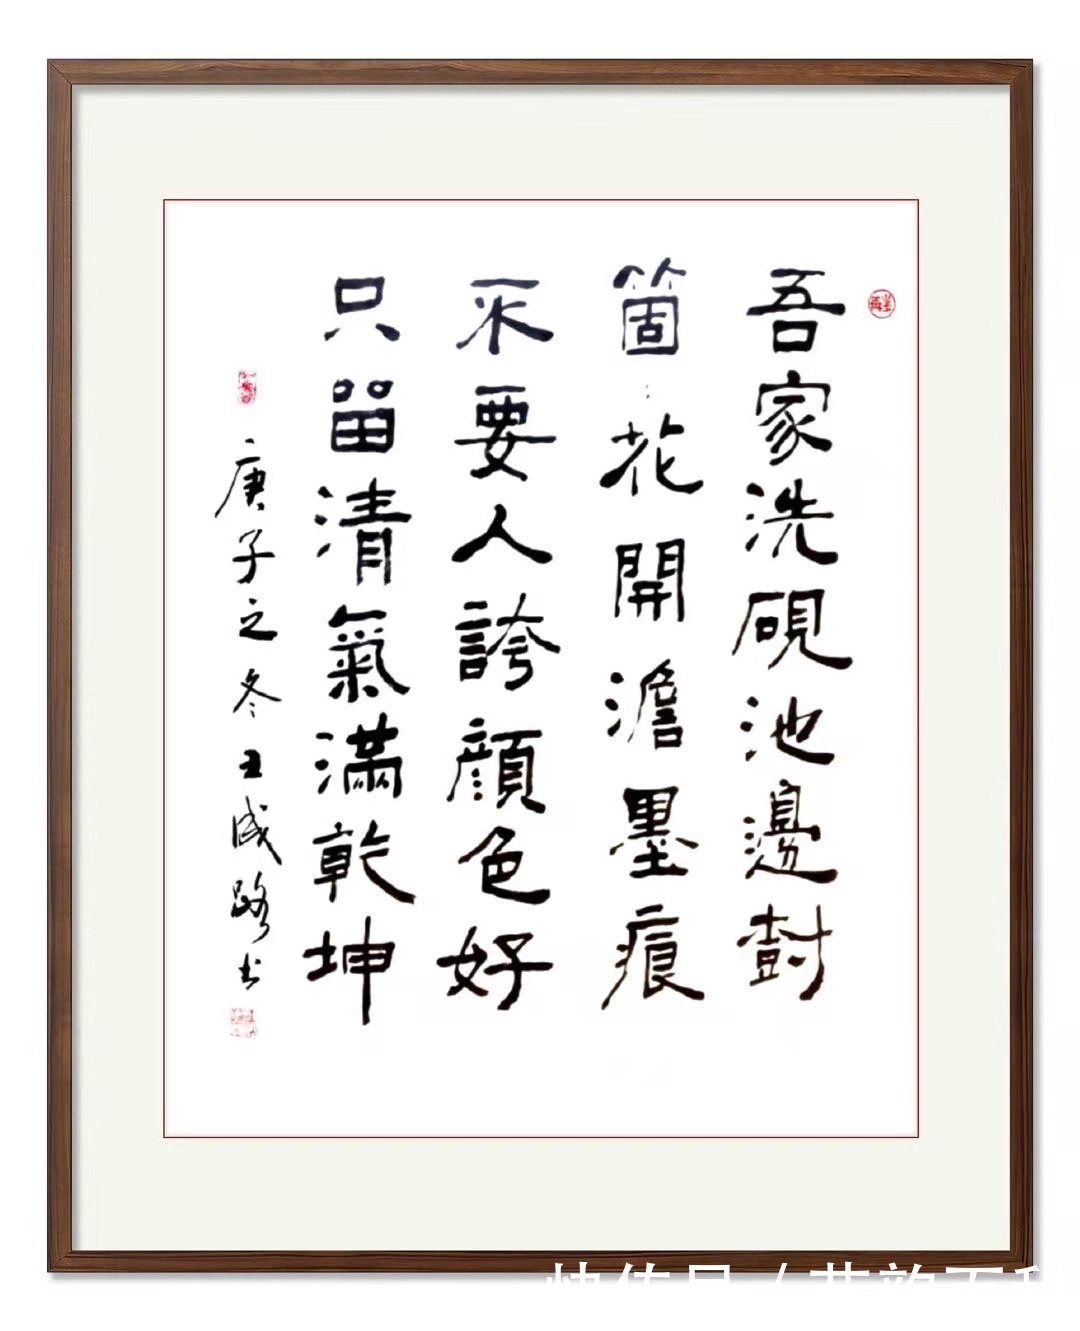 吾家洗硯池邊樹
箇々花開澹墨痕
不要人誇顔色好
只留清氣滿乾坤
庚子之冬王成路书
快传号 /